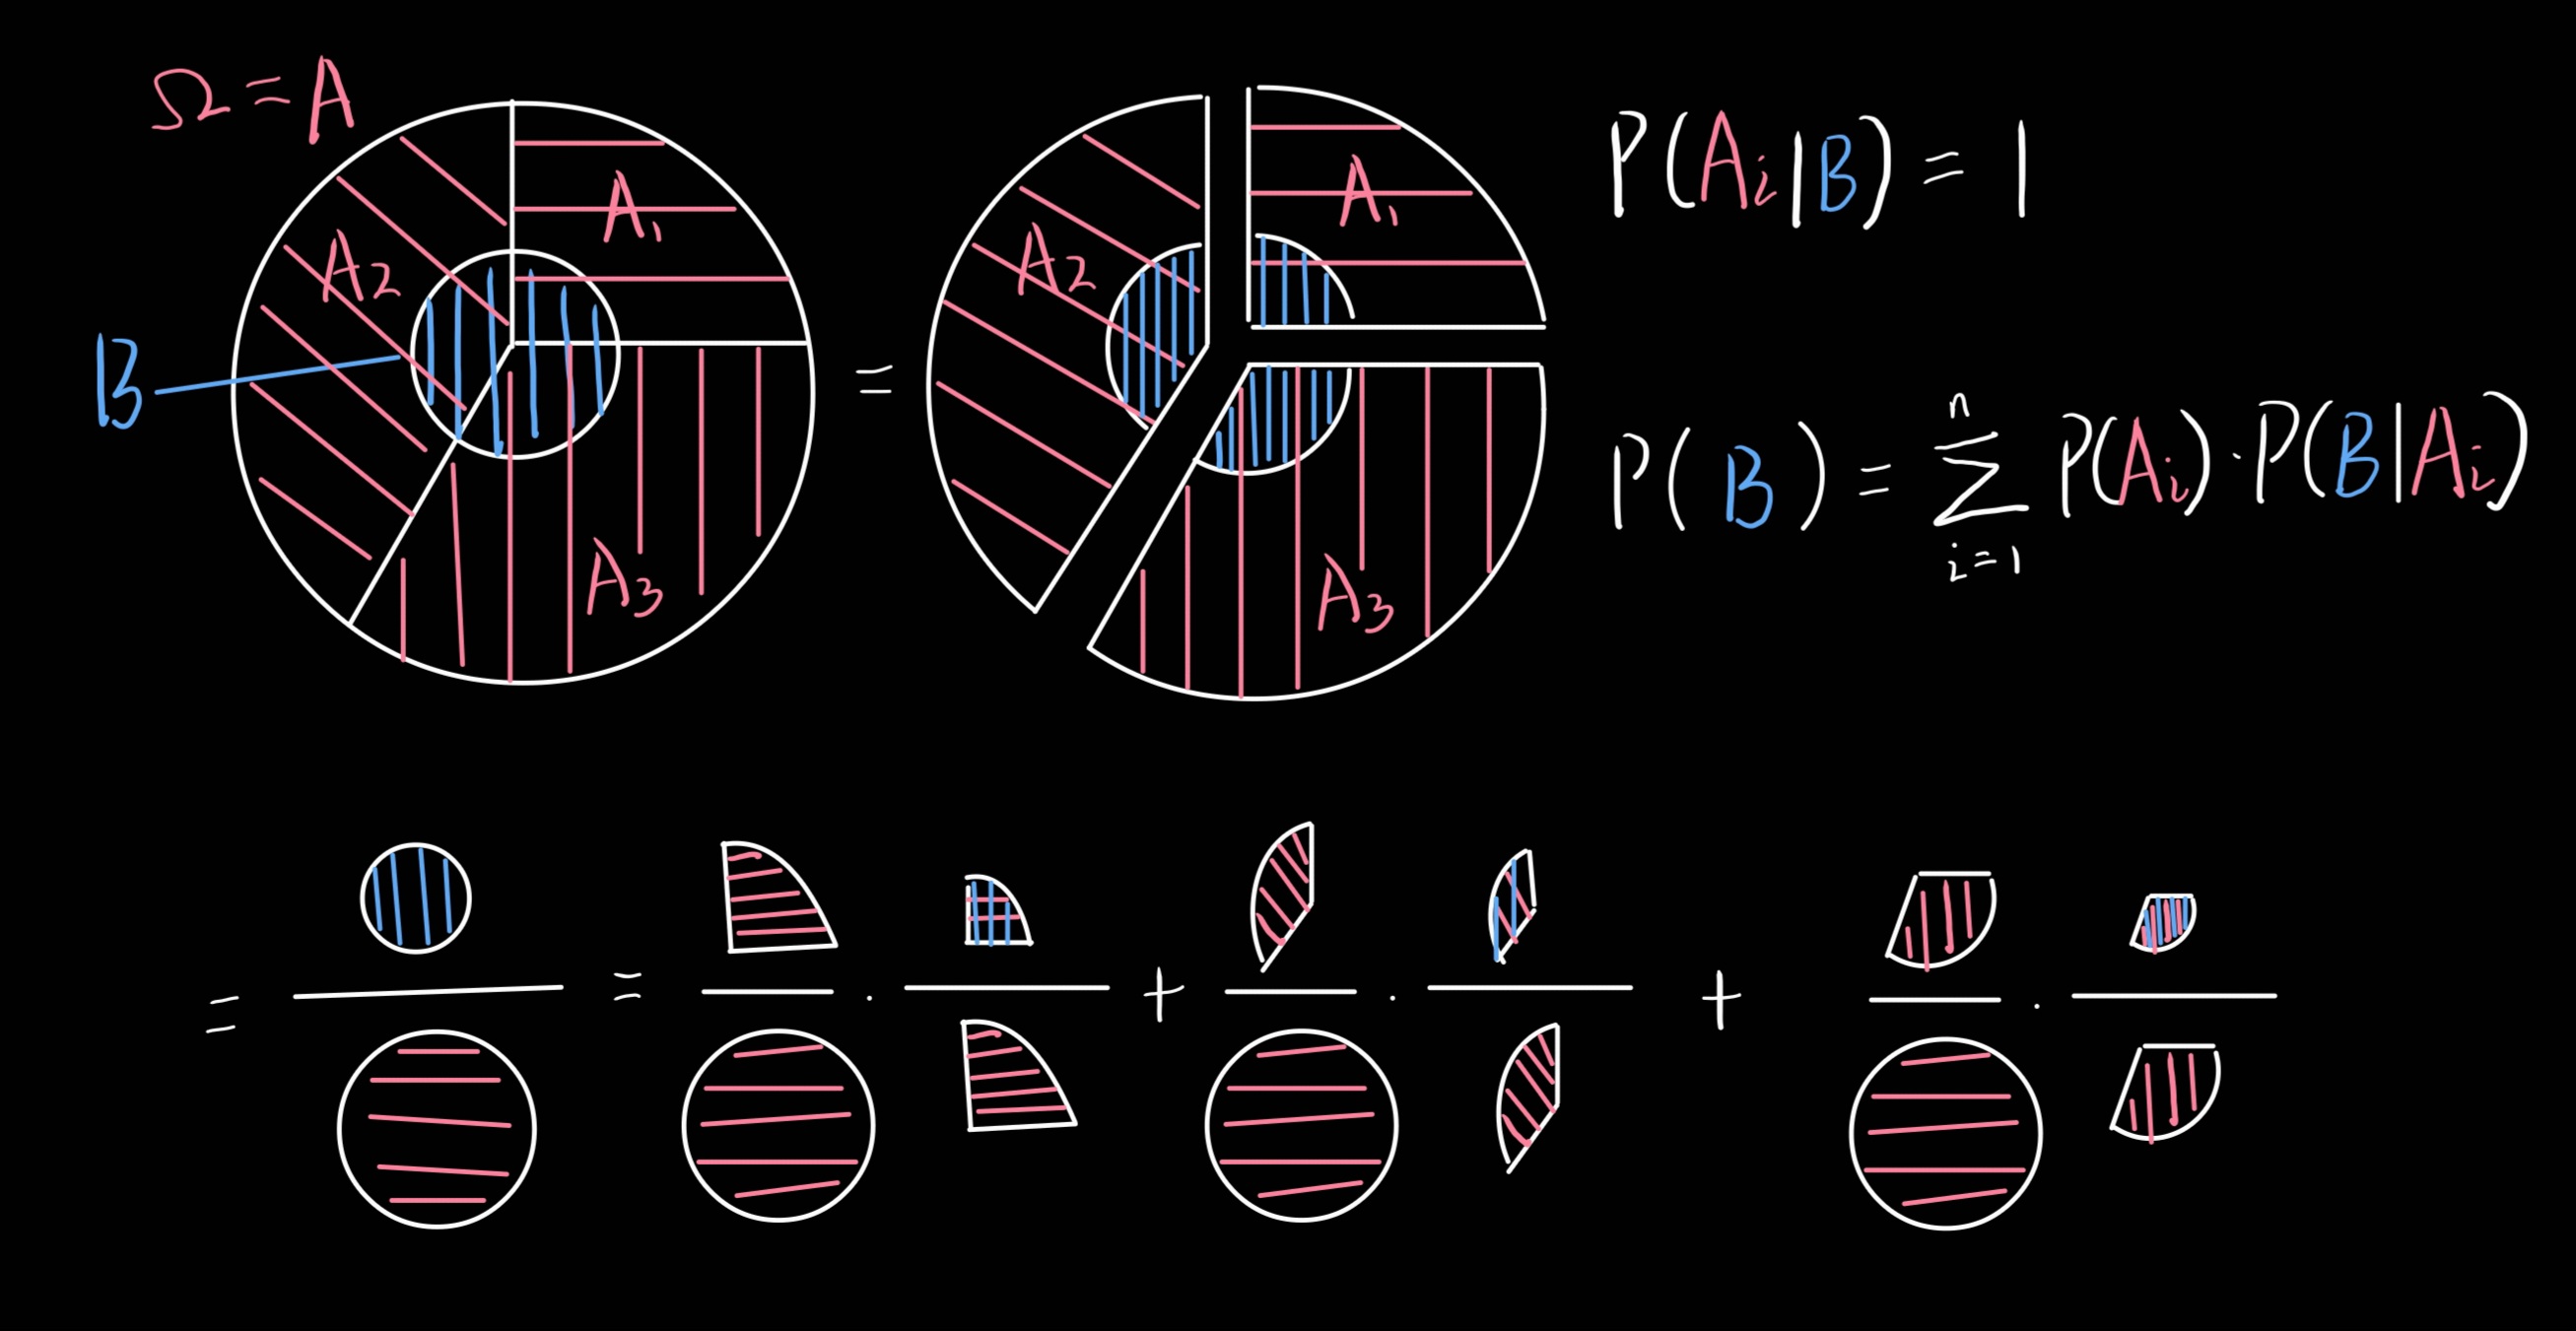 Ω = A
A₁
A₂
B
A₃
=
A₁
A₂
A₃
P(Aᵢ|B) = 1
P( B ) = ∑ⁿᵢ₌₁ P(Aᵢ)·P(B|Aᵢ)
= = · + · + ·